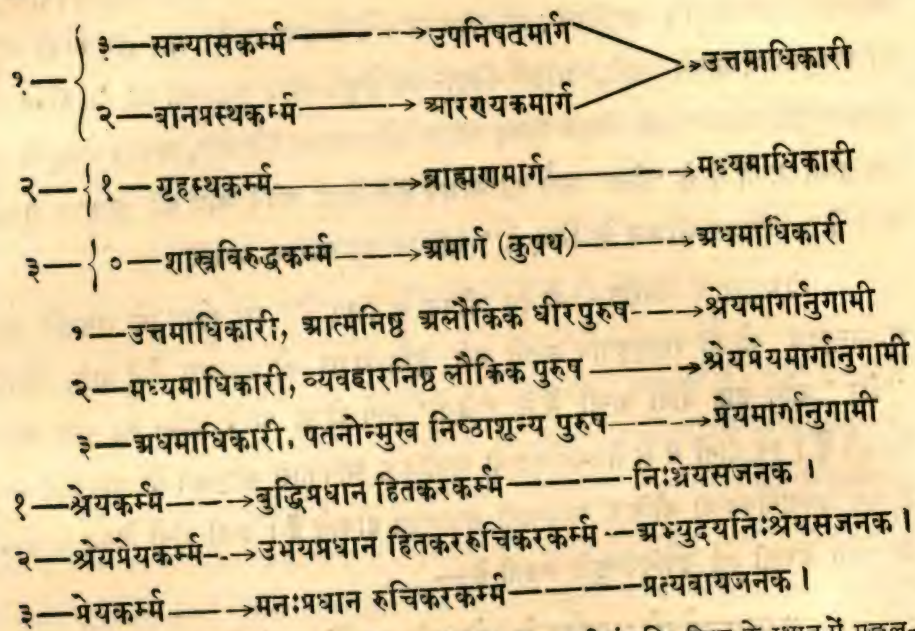 ३—सन्यासकर्म्म———→उपनिषत्मार्ग
१—{ →उत्तमाधिकारी
२—वानप्रस्थकर्म्म———→आरण्यकमार्ग
२—{ १—गृहस्थकर्म्म———→ब्राह्मणमार्ग———→मध्यमाधिकारी
३—{ ०—शास्त्रविरुद्धकर्म्म———→अमार्ग (कुपथ)———→अधमाधिकारी
१—उत्तमाधिकारी, आत्मनिष्ठ अलौकिक धीरपुरुष———→श्रेयमार्गानुगामी
२—मध्यमाधिकारी, व्यवहारनिष्ठ लौकिक पुरुष———→श्रेयप्रेयमार्गानुगामी
३—अधमाधिकारी, पतनोन्मुख निष्ठाशून्य पुरुष———→प्रेयमार्गानुगामी
१—श्रेयकर्म्म———→बुद्धिप्रधान हितकरकर्म्म————निःश्रेयसजनक ।
२—श्रेयप्रेयकर्म्म--→उभयप्रधान हितकररुचिकरकर्म्म—अभ्युदयनिःश्रेयसजनक ।
३—प्रेयकर्म्म———→मनःप्रधान रुचिकरकर्म्म————प्रत्यवायजनक ।